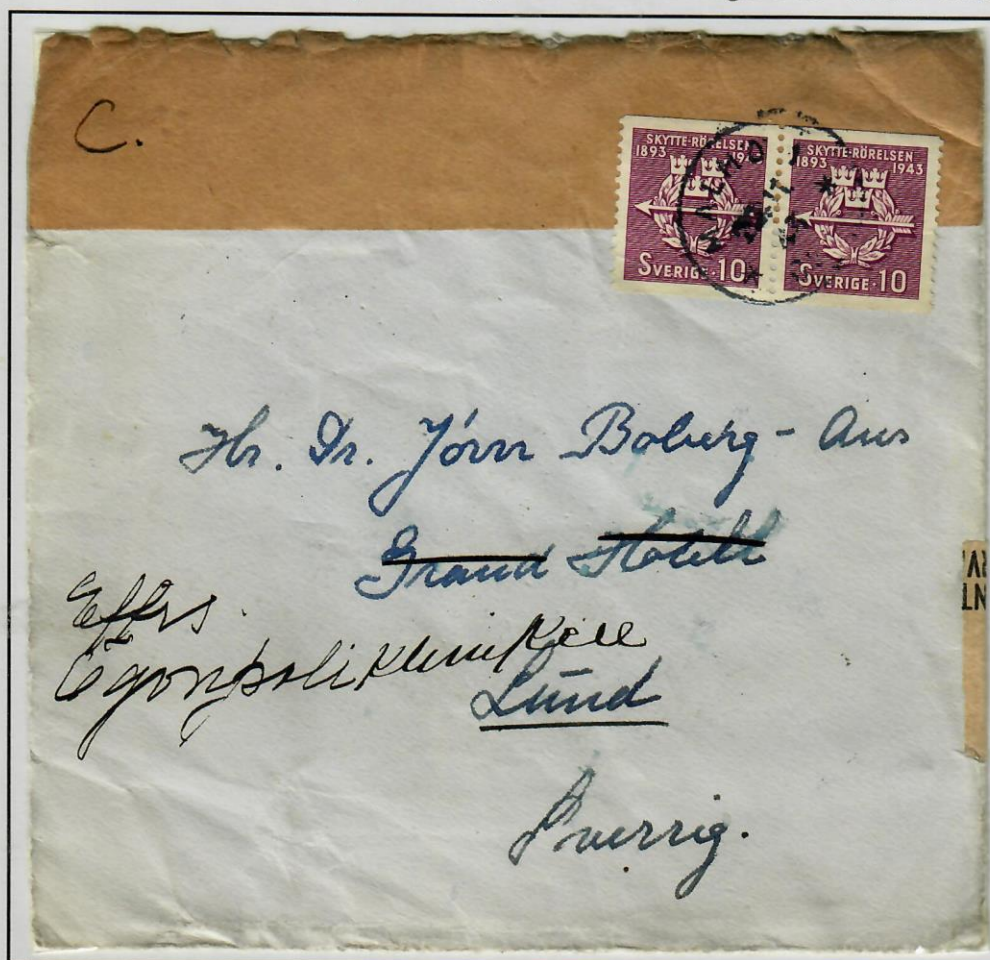 C.
SKYTTE-RÖRELSEN
1893 19
SVERIGE·10
SKYTTE-RÖRELSEN
1893 1943
SVERIGE·10
MALMÖ 1
Hr. Dr. Jörn Boberg - Aus
Grand Hotell
Efters.
Ögonpolikliniken
Lund
Sverrig.